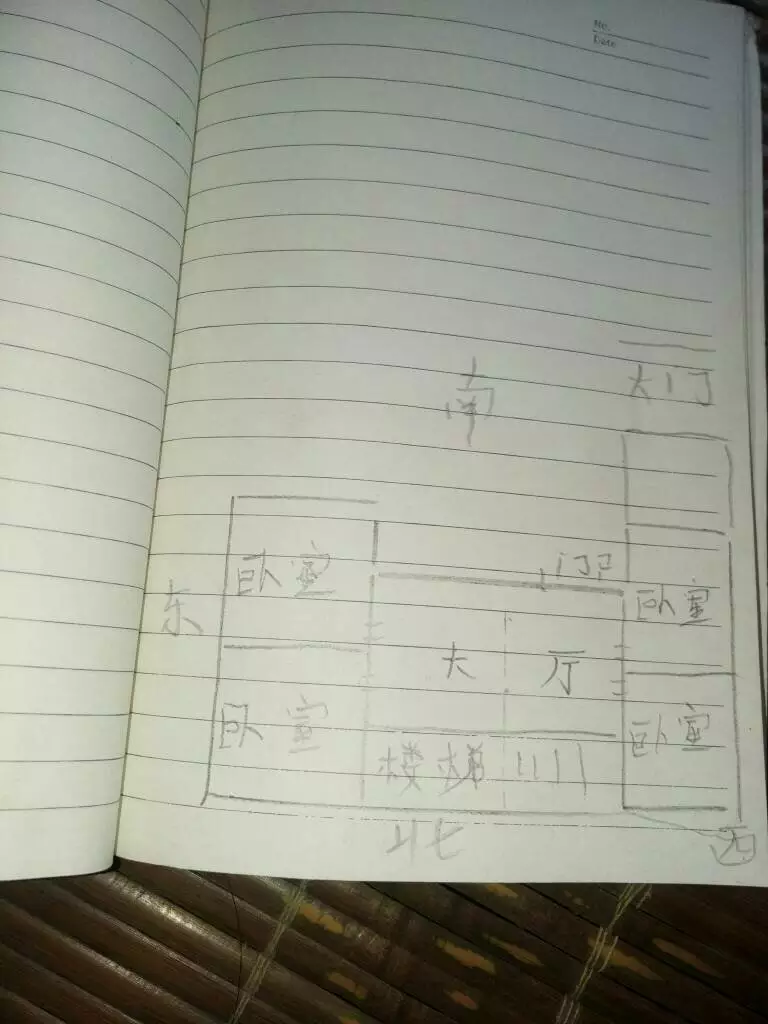 No.
Date
南
大门
卧室
门口
东
卧室
大厅
卧室
卧室
楼梯
北
西